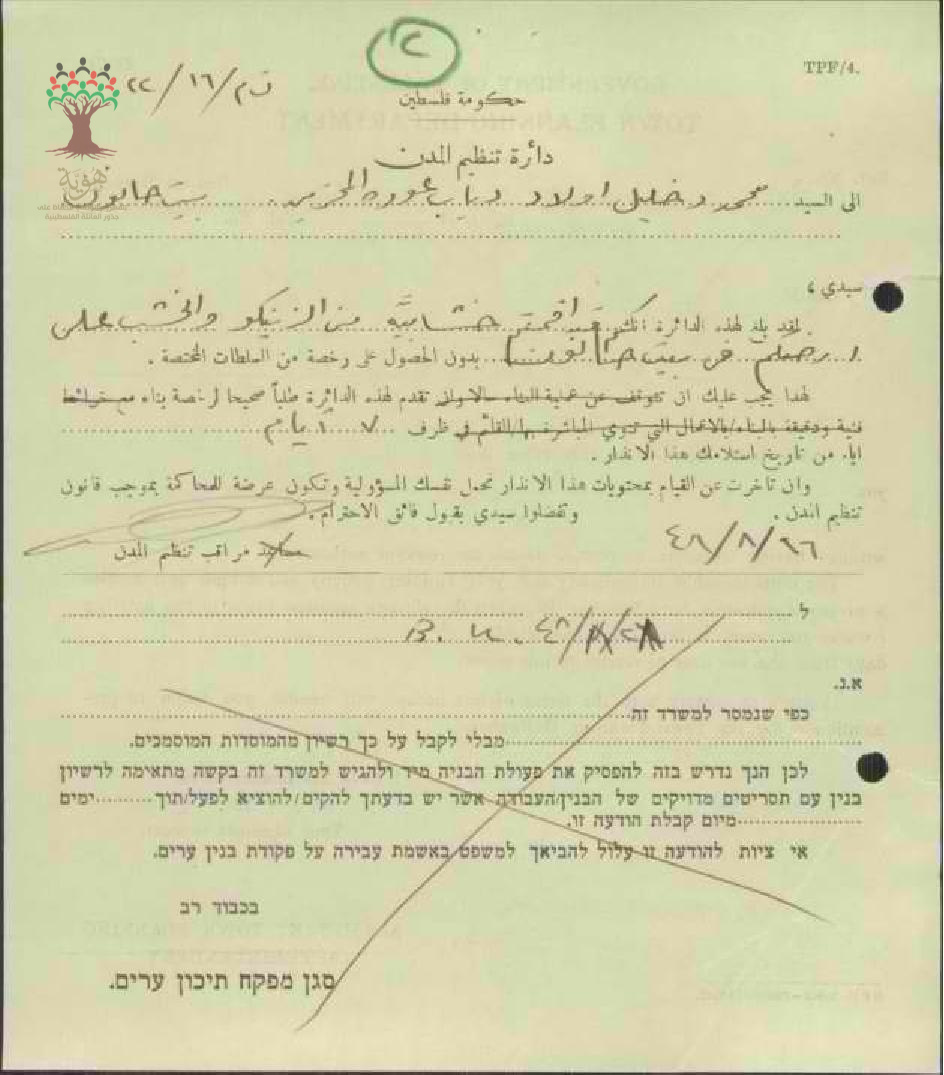 ٢
TPF/4.
ت م/١٦/٢٢
حكومة فلسطين
دائرة تنظيم المدن
هوية
جذور العائلة الفلسطينية
الى السيد محمد وخليل اولاد دياب عوده بيت حانون
سيدي ،
لقد بلغ لهذه الدائرة انكم قد اقمتم من الزينكو والخشب على
بدون الحصول على رخصة من السلطات المختصة .
لهذا يجب عليك ان تتوقف عن عملية البناء حالا وان تقدم لهذه الدائرة طلباً صحيحا لرخصة بناء مع خرائط
فنية ودقيقة بالبناء/بالاعمال التي تنوي المباشرة بها/القائم في ظرف ٧ ايام
ايا. من تاريخ استلامك هذا الانذار .
وان تأخرت عن القيام بمحتويات هذا الانذار تحمل نفسك المسؤولية وتكون عرضة للمحاكمة بموجب قانون
تنظيم المدن . وتفضلوا سيدي بقبول فائق الاحترام .
٤٦/٨/٢٦
مساعد مراقب تنظيم المدن
ל
א.נ.
כפי שנמסר למשרד זה
מבלי לקבל על כך רשיון מהמוסדות המוסמכים.
לכן הנך נדרש בזה להפסיק את פעולת הבניה מיד ולהגיש למשרד זה בקשה מתאימה לרשיון
בנין עם תסריטים מדויקים של הבנין/העבודה אשר יש בדעתך להקים/להוציא לפעל/תוך ימים
מיום קבלת הודעה זו.
אי ציות להודעה זו עלול להביאך למשפט באשמת עבירה על פקודת בנין ערים.
בכבוד רב
סגן מפקח תיכון ערים.